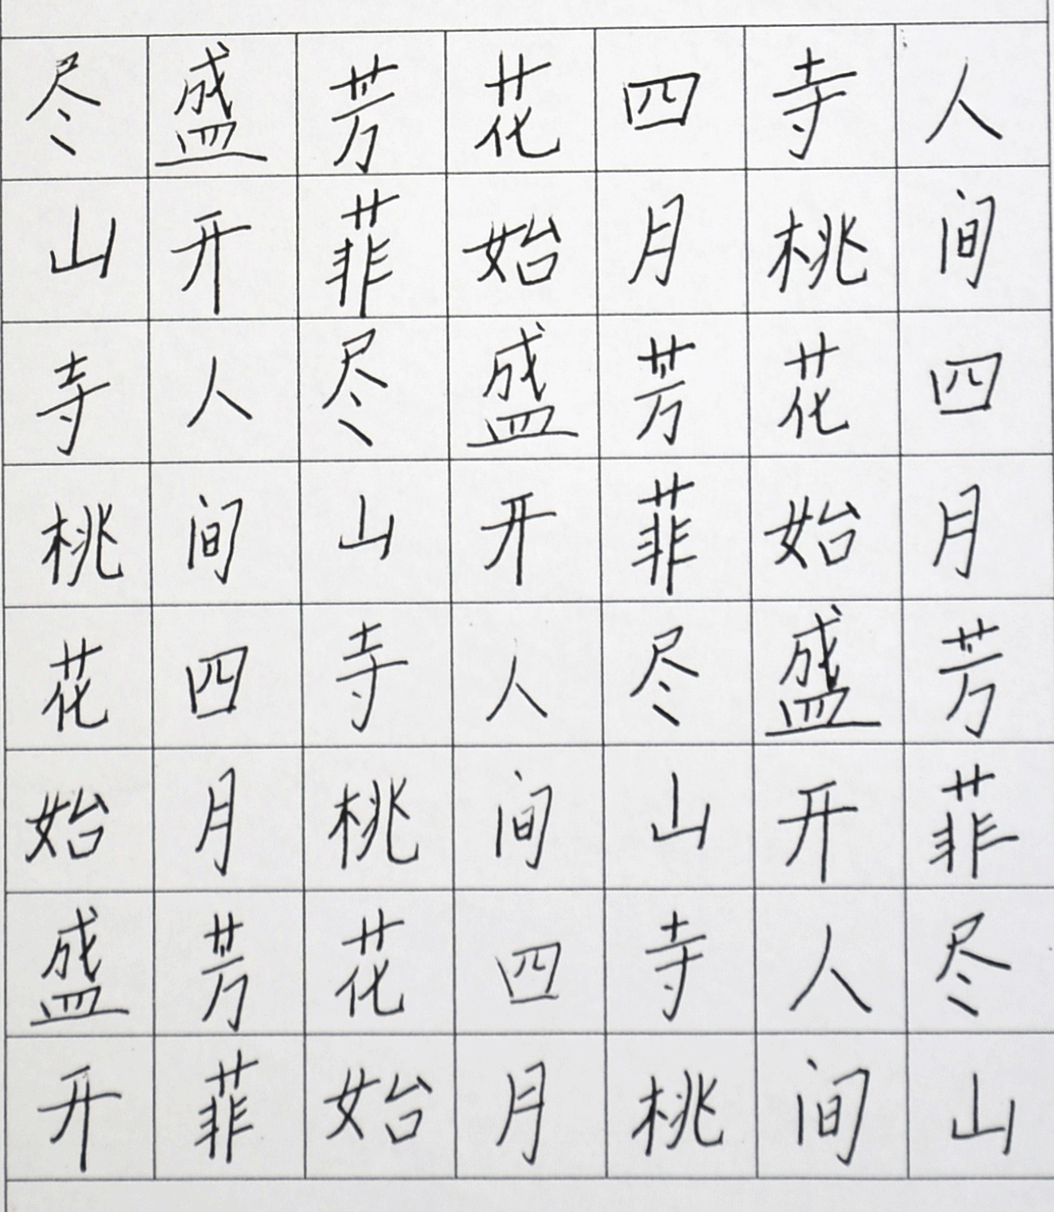 人间四月芳菲尽山
寺桃花始盛开人间
四月芳菲尽山寺桃
花始盛开人间四月
芳菲尽山寺桃花始
盛开人间四月芳菲
尽山寺桃花始盛开